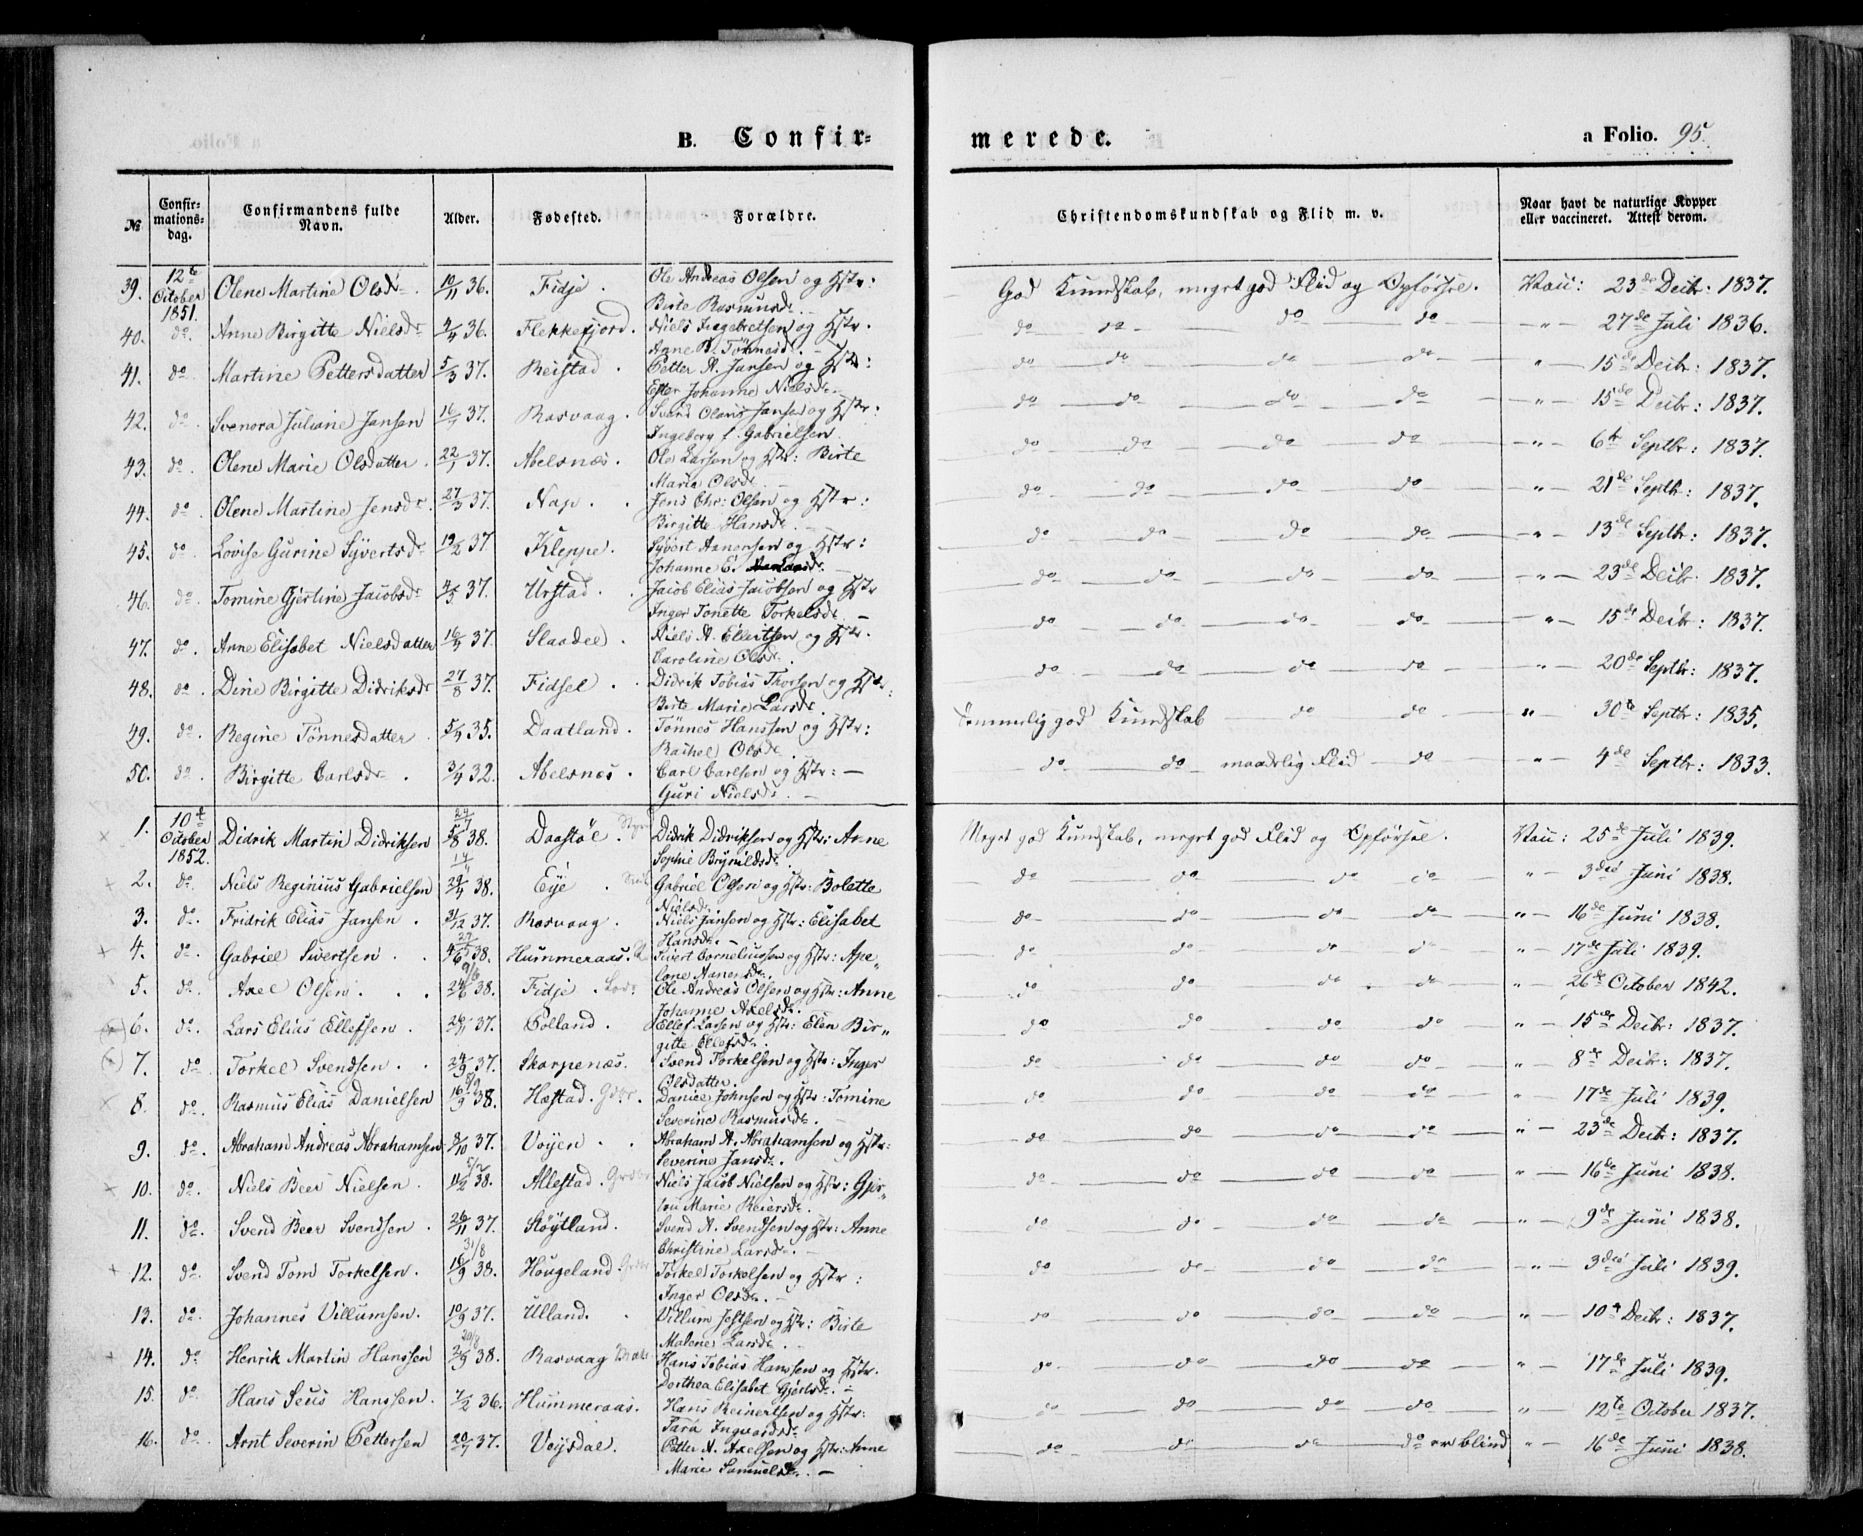 B. Confir=
merede.
a Folio. 95.
№
Confir-
mations-
dag.
Confirmandens fulde
Navn.
Alder.
Fødested.
Forældre.
Christendomskundskab og Flid m. v.
Naar havt de naturlige Kopper
eller vaccineret. Attest derom.
39. 12te October 1851. Olene Martine Olsdr. 10/11 36. Fidje. Ole Andreas Olsen og Hstr: God Kundskab, meget god Flid og Opførsel. Vac: 23de Decbr: 1837.
Birte Rasmusdr.
40. do. Anne Birgitte Nielsdr 4/4 36. Flekkefjord. Niels Ingebretsen og Hstr. do do do do " 27de Juli 1836.
Anne B. Tønnesd.
41. do Martine Pettersdatter 5/3 37. Reistad. Petter A. Jansen og Hstr: do do do do " 15de Decbr: 1837.
Ester Johanne Nielsdr
42. do. Svenora Juliane Jansen 16/1 37. Rasvaag. Svend Olaus Jansen og Hstr: do do do do " 15de Decbr: 1837.
Ingeborg f. Gabrielsen
43. do. Olene Marie Olsdatter. 22/1 37. Abelsnæs. Ole Larsen og Hstr: Birte do do do do " 6te Septbr: 1837.
Maria Olsdr.
44. do. Olene Martine Jensdr. 27/3 37. Nap. Jens Chr: Olsen og Hstr: do do do do " 21de Septbr: 1837.
Birgitte Hansdr.
45. do. Lovise Gurine Syvertsdr 19/2 37 Kleppe. Syvert Aanensen og Hstr: do do do do " 13de Septbr: 1837.
Johanne E.
46. do. Tomine Gjertine Jacobsdr 4/3 37. Urstad. Jacob Elias Jacobsen og Hstr do do do do " 23de Decbr: 1837.
Inger Tonette Torkelsdr
47. do. Anne Elisabet Nielsdatter 16/4 37. Slaadel. Niels A. Ellertsen og Hstr. do do do do " 15de Decbr: 1837.
Caroline Olsdr.
48. do. Dine Birgitte Didriksdr 27/8 37. Fidsel. Didrik Tobias Thorsen og Hstr: do do do do " 20de Septbr: 1837.
Birte Marie Larsdr.
49. do. Regine Tønnesdatter 5/4 35. Daatland. Tønnes Hanssen og Hstr: Temmelig god Kundskab do do " 30te Septbr: 1835.
Rachel Olsdr
50. do. Birgitte Carlsdr. 3/4 32. Abelsnæs. Carl Carlsen og Hstr: do do maadelig Flid do " 4de Septbr: 1833.
Guri Nielsdr.
1. 10de October 1852. Didrik Martin Didriksen 5/8 38. Daastøl. Didrik Didriksen og Hstr: Anne Meget god Kundskab, meget god Flid og Opførsel. Vac: 25de Juli 1839.
Sophie Brynildsdr.
2. do. Niels Reginius Gabrielsen 29/4 38. Eye. Gabriel Olsen og Hstr: Bolette do do do do " 3die Juni 1838.
Nielsdr.
3. do. Fridrik Elias Jansen. 31/12 37. Rasvaag. Niels Jansen og Hstr: Elisabet do do do do " 16de Juni 1838.
Hansdr.
4. do. Gabriel Sivertsen. 4/6 38. Hummeraas. Sivert Corneliussen og Hstr: Ape„ do do do do " 17de Juli 1839.
lone Aanensdr.
5. do. Axel Olsen. 24/6 38. Fidje. Ole Andreas Olsen og Hstr: Anne do do do do " 26de October 1842.
Johanne Axelsdr.
6. do. Lars Elias Ellefsen. 26/11 37. Polland. Ellef Larsen og Hstr: Elen Bir„ do do do do " 15de Decbr: 1837.
gitte Ellefsdr.
7. do Torkel Svendsen. 24/9 37. Skarpenæs. Svend Torkelsen og Hstr: Inger do do do do " 8de Decbr: 1837.
Olsdatter.
8. do. Rasmus Elias Danielsen 16/9 38. Hæstad. Daniel Johnsen og Hstr: Tomine do do do do " 17de Juli 1839.
Severine Rasmusdr.
9. do. Abraham Andreas Abrahamsen 8/10 37. Voyen. Abraham A. Abrahamsen og Hstr: do do do do " 23de Decbr: 1837.
Severine Jansdr.
10. do. Niels Beer Nielsen. 11/2 38. Allestad. Niels Jacob Nielsen og Hstr: Gjer„ do do do do " 16de Juni 1838.
tru Marie Reiersdr.
11. do. Svend Beer Svendsen. 26/11 37. Støytland. Svend A. Svendsen og Hstr: Anne do do do do " 9de Juni 1838.
Christine Larsdr.
12. do. Svend Tom Torkelsen. 16/9 38. Hougeland. Torkel Torkelsen og Hstr: do do do do " 3die Juli 1839.
Inger Olsdr.
13. do. Johannes Villumsen. 10/9 37. Ulland. Villum Jostsen og Hstr: Birte do do do do " 10de Decbr: 1837.
Malene Larsdr.
14. do Henrik Martin Hanssen 2/9 38. Rasvaag Hans Tobias Hanssen og Hstr. do do do do " 17de Juli 1839.
Dorthea Elisabet Gjertsdr.
15. do. Hans Seus Hanssen. 7/2 36. Hummeraas. Hans Reinertsen og Hstr: do do do do " 12te October 1837.
Tara Ingvardsdr.
16. do. Arnt Severin Pettersen 20/7 37. Voysdal. Petter A. Axelsen og Hstr: Anne do do do do er blind " 16de Juni 1838.
Marie Samuelsdr.